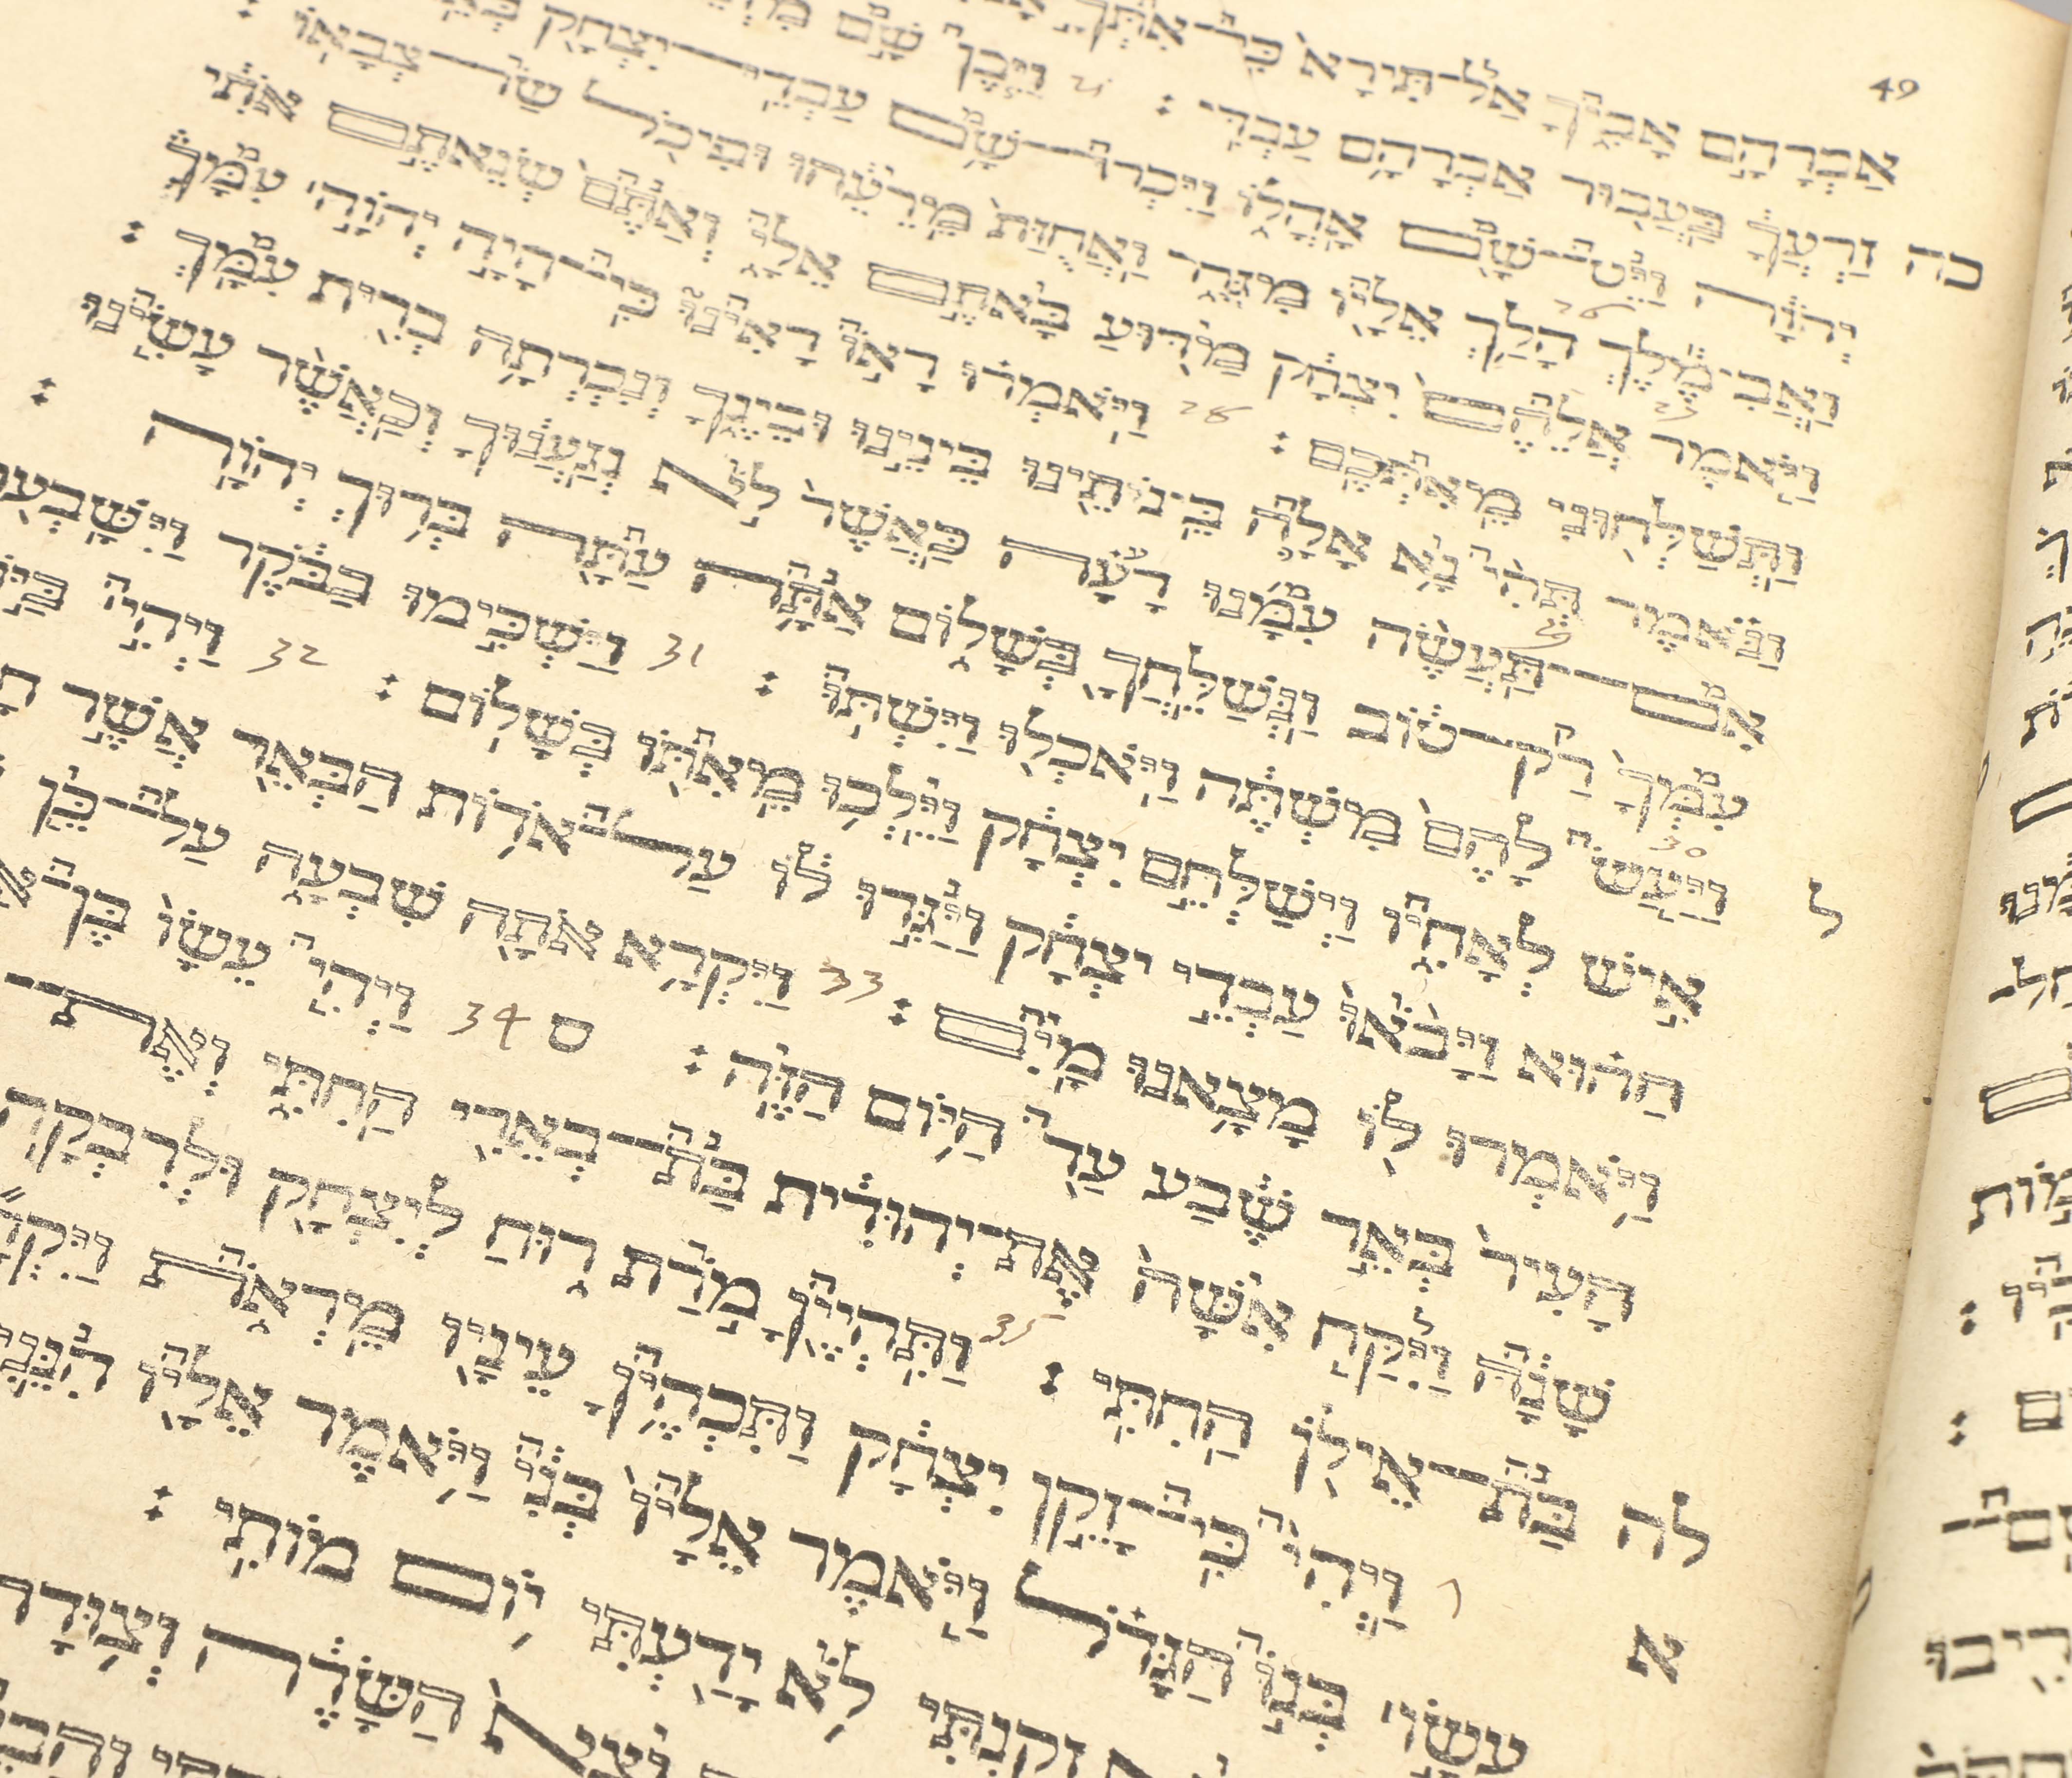 49
אַבְרָהָם אָבִיךָ אַל־תִּירָא כִּי־אִתְּךָ
זַרְעֲךָ בַּעֲבוּר אַבְרָהָם עַבְדִּי : 25 וַיִּבֶן שָׁם
כה
יְהוָה וַיֶּט־שָׁם אָהֳלוֹ וַיִּכְרוּ־שָׁם עַבְדֵי־יִצְחָק
26 וַאֲבִימֶלֶךְ הָלַךְ אֵלָיו מִגְּרָר וַאֲחֻזַּת מֵרֵעֵהוּ וּפִיכֹל שַׂר־צְבָאוֹ :
27 וַיֹּאמֶר אֲלֵהֶם יִצְחָק מַדּוּעַ בָּאתֶם אֵלָי וְאַתֶּם שְׂנֵאתֶם אֹתִי
וַתְּשַׁלְּחוּנִי מֵאִתְּכֶם : 28 וַיֹּאמְרוּ רָאוֹ רָאִינוּ כִּי־הָיָה יְהוָה עִמָּךְ
וַנֹּאמֶר תְּהִי נָא אָלָה בֵּינֹתֵינוּ בֵּינֵינוּ וּבֵינֶךָ וְנִכְרְתָה בְרִית עִמָּךְ :
29 אִם־תַּעֲשֵׂה עִמָּנוּ רָעָה כַּאֲשֶׁר לֹא נְגַעֲנוּךָ וְכַאֲשֶׁר עָשִׂינוּ
עִמְּךָ רַק־טוֹב וַנְּשַׁלֵּחֲךָ בְּשָׁלוֹם אַתָּה עַתָּה בְּרוּךְ יְהוָה :
ל 30 וַיַּעַשׂ לָהֶם מִשְׁתֶּה וַיֹּאכְלוּ וַיִּשְׁתּוּ : 31 וַיַּשְׁכִּימוּ בַבֹּקֶר וַיִּשָּׁבְעוּ
אִישׁ לְאָחִיו וַיְשַׁלְּחֵם יִצְחָק וַיֵּלְכוּ מֵאִתּוֹ בְּשָׁלוֹם : 32 וַיְהִי
הַהוּא וַיָּבֹאוּ עַבְדֵי יִצְחָק וַיַּגִּדוּ לוֹ עַל־אֹדוֹת הַבְּאֵר אֲשֶׁר
וַיֹּאמְרוּ לוֹ מָצָאנוּ מָיִם : 33 וַיִּקְרָא אֹתָהּ שִׁבְעָה עַל־כֵּן
הָעִיר בְּאֵר שֶׁבַע עַד הַיּוֹם הַזֶּה : ס 34 וַיְהִי עֵשָׂו בֶּן
שָׁנָה וַיִּקַּח אִשָּׁה אֶת־יְהוּדִית בַּת־בְּאֵרִי הַחִתִּי וְאֶת־
לה בַּת־אֵילֹן הַחִתִּי : 35 וַתִּהְיֶיןָ מֹרַת רוּחַ לְיִצְחָק וּלְרִבְקָה
א 1 וַיְהִי כִּי־זָקֵן יִצְחָק וַתִּכְהֶיןָ עֵינָיו מֵרְאֹת
עֵשָׂו בְּנוֹ הַגָּדֹל וַיֹּאמֶר אֵלָיו בְּנִי וַיֹּאמֶר אֵלָיו
זָקַנְתִּי לֹא יָדַעְתִּי יוֹם מוֹתִי :
הַשָּׂדֶה וְצוּדָה